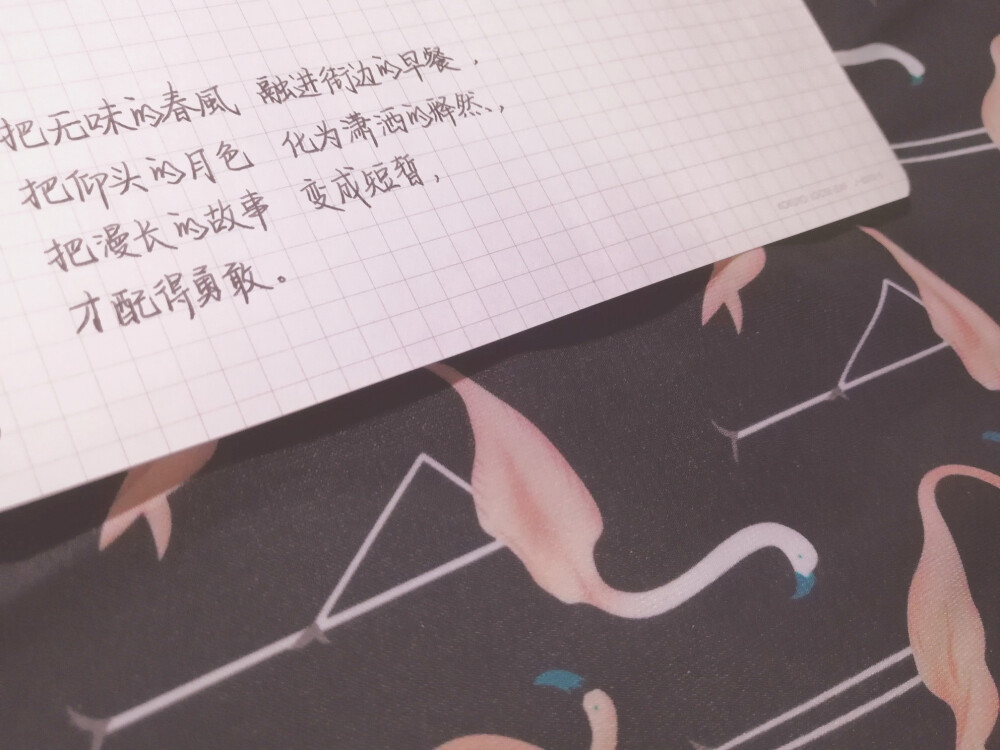 把无味的春風 融进街边的早餐，
把仰头的月色 化为潇洒的释然、，
把漫长的故事 变成短暂，
才配得勇敢。